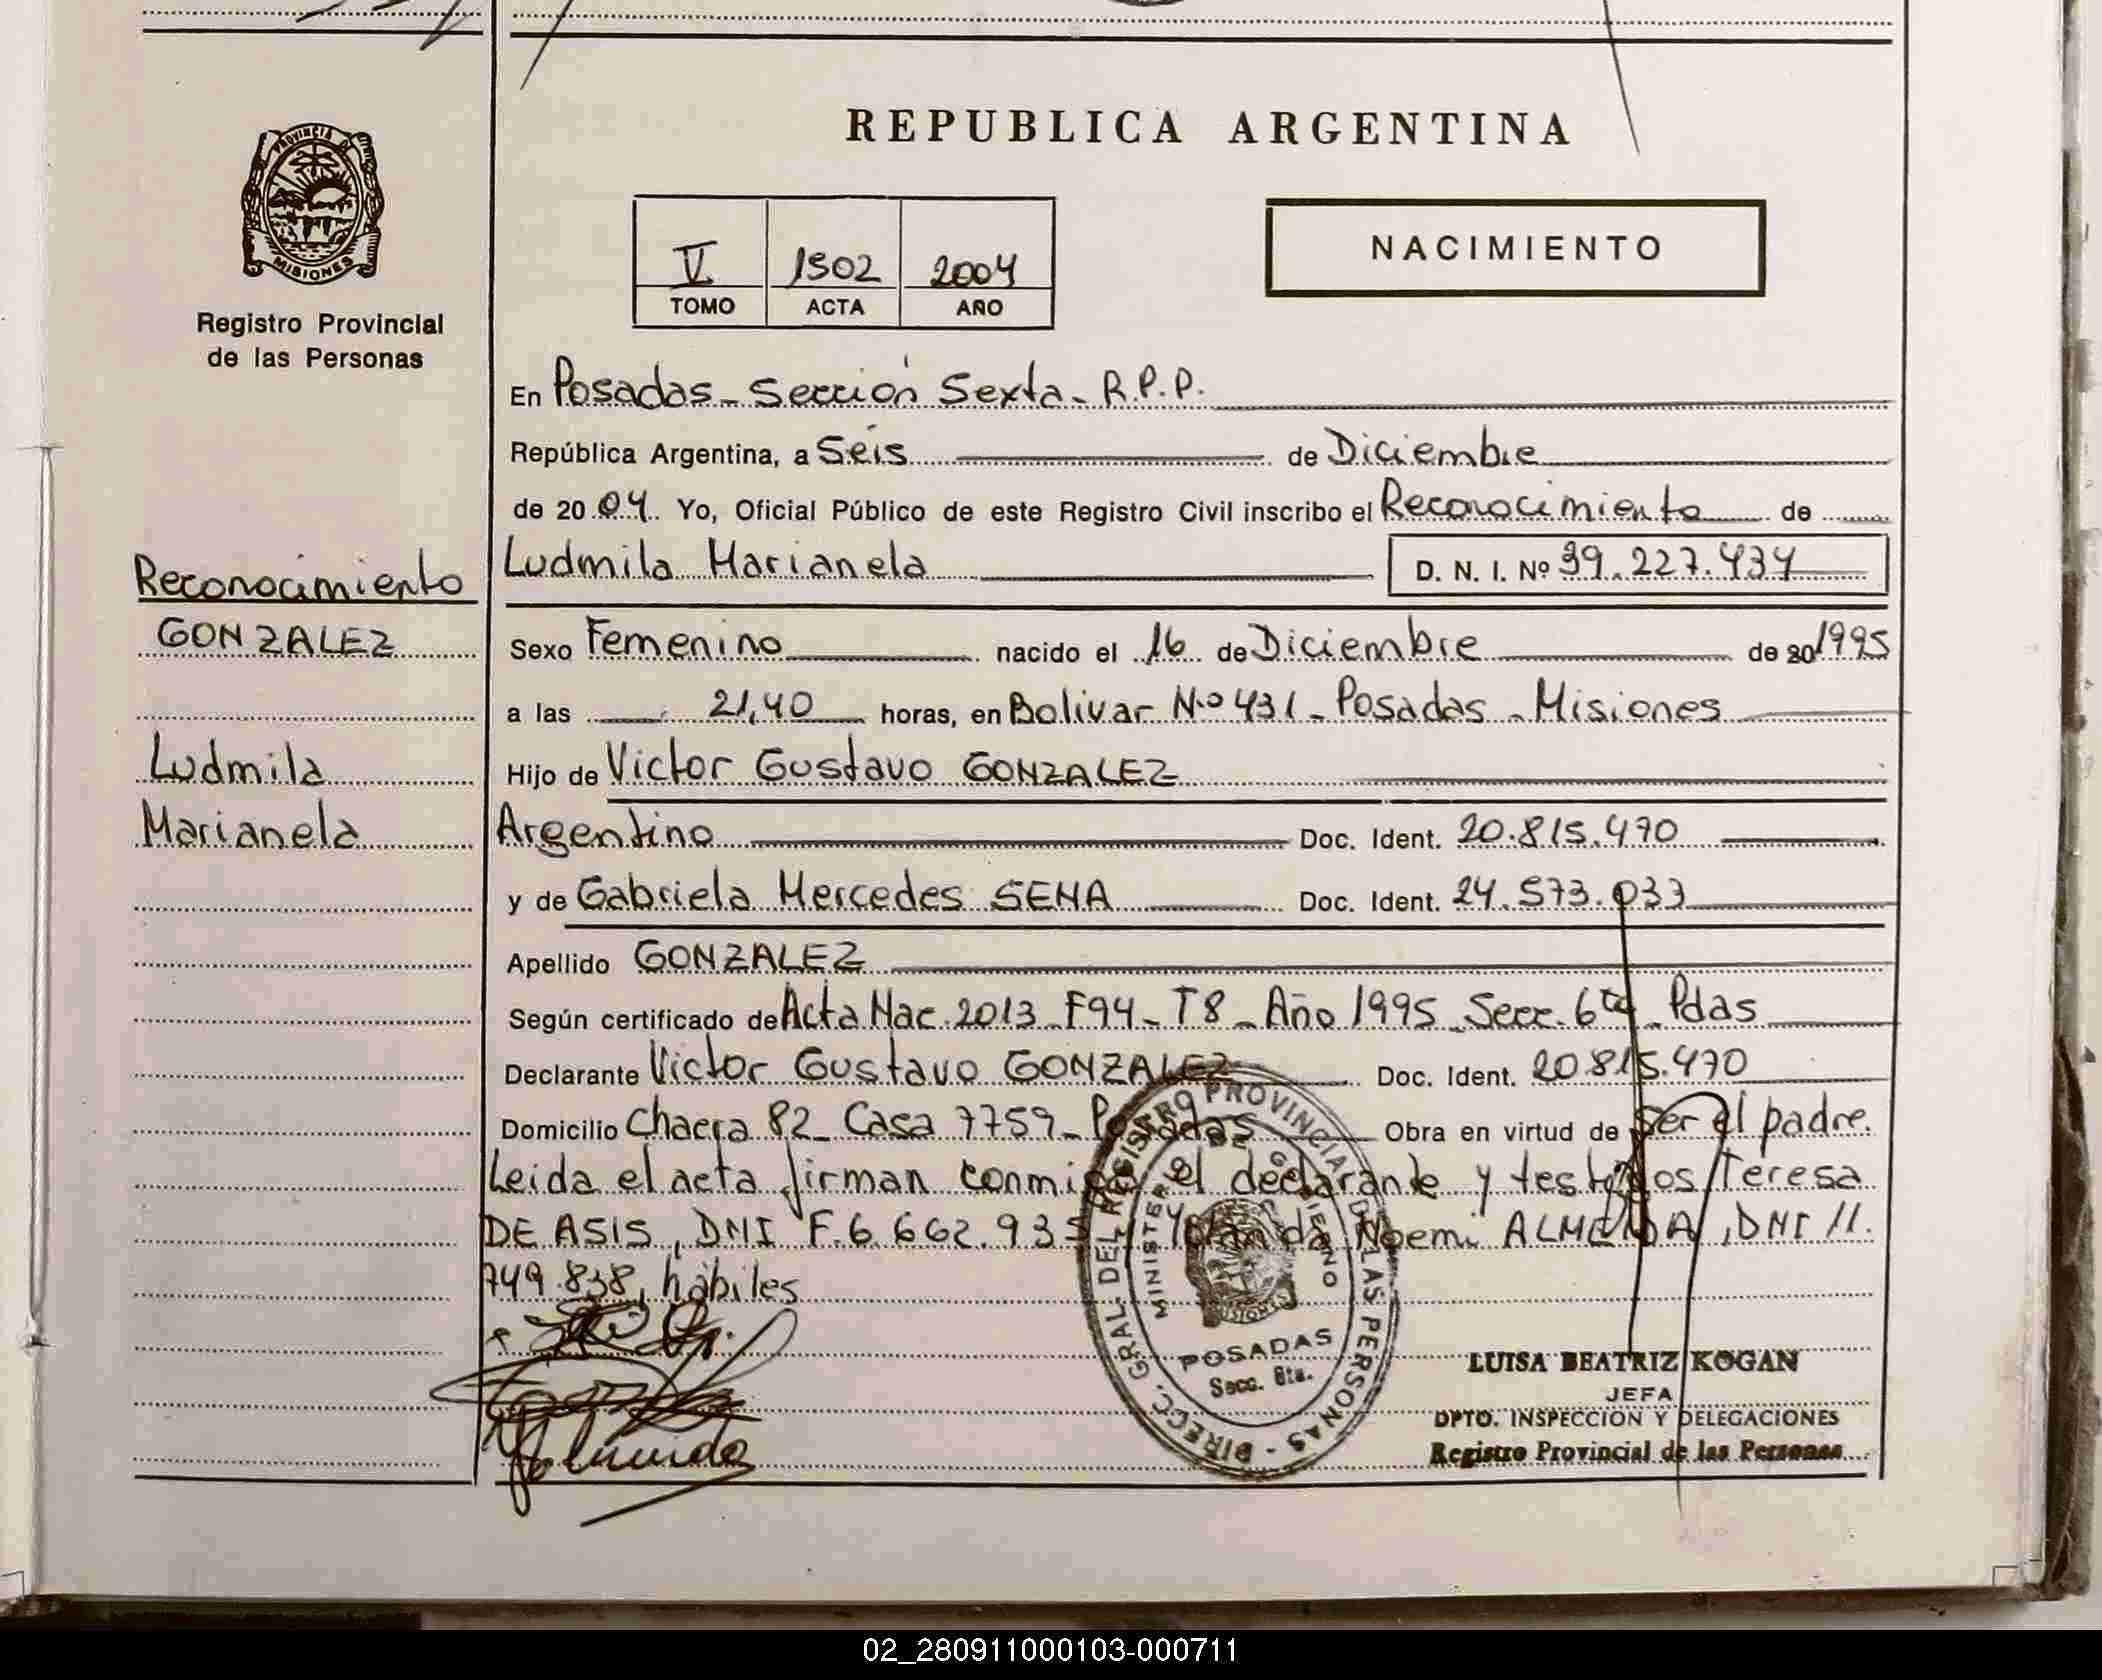 REPUBLICA ARGENTINA
PROVINCIA DE
MISIONES
Registro Provincial
de las Personas
V 1502 2004
TOMO ACTA AÑO
NACIMIENTO
En Posadas - Sección Sexta - R.P.P.
República Argentina, a Seis de Diciembre
de 2004 Yo, Oficial Público de este Registro Civil inscribo el Reconocimiento de
Ludmila Marianela D. N. I. Nº 39.227.434
Reconocimiento
GONZALEZ
Ludmila
Marianela
Sexo Femenino nacido el 16 de Diciembre de 20 1995
a las 21,40 horas, en Bolivar Nº 431 - Posadas - Misiones
Hijo de Victor Gustavo GONZALEZ
Argentino Doc. Ident. 20.815.470
y de Gabriela Mercedes SENA Doc. Ident. 24.573.033
Apellido GONZALEZ
Según certificado de Acta Nac. 2013 - F94 - T8 - Año 1995 - Secc. 6ta - Pdas
Declarante Victor Gustavo GONZALEZ Doc. Ident. 20.815.470
Domicilio Chacra 82 - Casa 7759 - Posadas Obra en virtud de Ser el padre.
Leida el acta firman conmigo el declarante y testigos Teresa
DE ASIS, DNI F.6.662.935 Yolanda Noemi ALMEIDA, DNI 11.
749.838, hábiles
DIRECC. GRAL. DEL REGISTRO PROVINCIAL DE LAS PERSONAS -
MINISTERIO DE GOBIERNO
MISIONES
POSADAS
Secc. 6ta.
LUISA BEATRIZ KOGAN
JEFA
DPTO. INSPECCION Y DELEGACIONES
Registro Provincial de las Personas
02_280911000103-000711